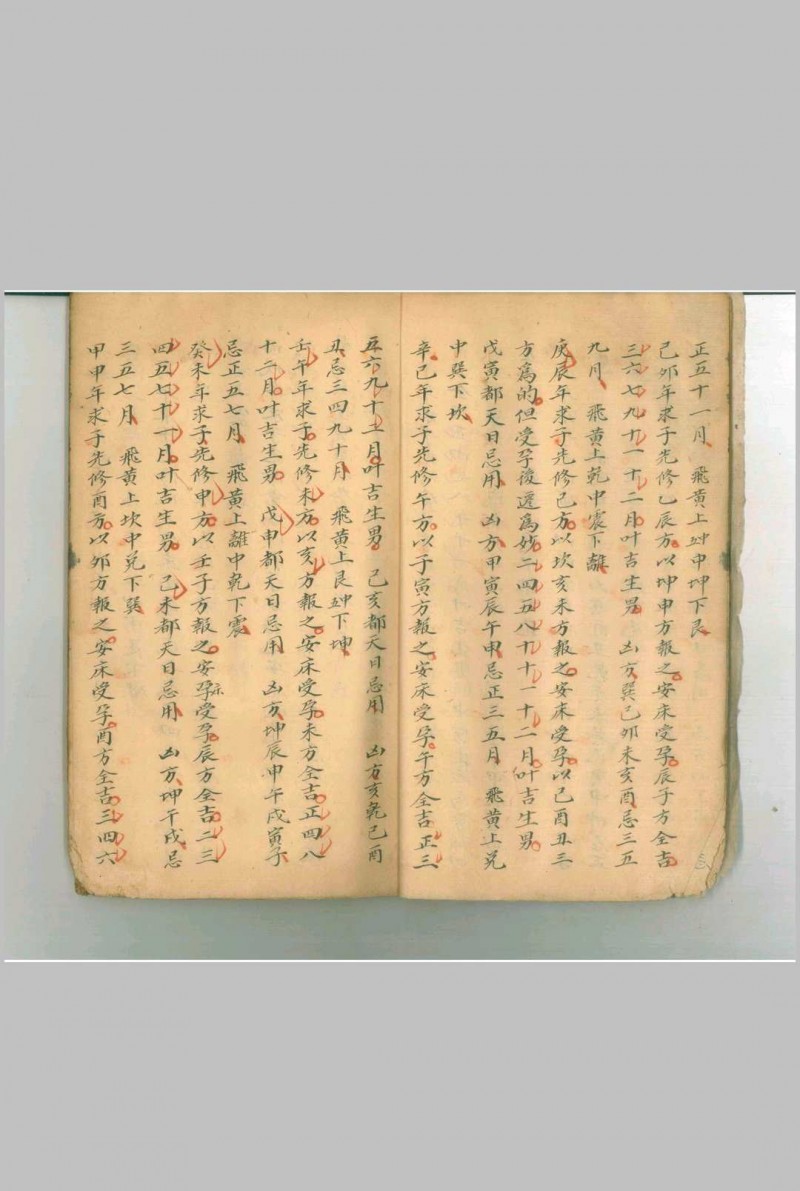 正五十一月 飛黃上艸中坤下艮
己卯年求子先修乙辰方以坤申方報之安床受孕辰子方全吉
三六七九十一十二月叶吉生男 凶方巽己卯未亥酉忌三五
九月 飛黃上乾中震下離
庚辰年求子先修己方以坎亥未方報之安床受孕以己酉丑三
方為的但受孕後遷為妙二四五八十十一十二月叶吉生男
戊寅都天日忌用 凶方甲寅辰午申忌正三五月 飛黃上兌
中巽下坎
辛巳年求子先修午方以子寅方報之安床受孕午方全吉正三
五六九十十一月叶吉生男 己亥都天日忌用 凶方亥乾己酉
丑忌三四九十月 飛黃上艮艸下坤
壬午年求子先修未方以亥方報之安床受孕未方全吉正四八
十二月叶吉生男 戊申都天日忌用 凶方坤辰申午戌寅子
忌正五七月 飛黃上離中乾下震
癸未年求子先修申方以壬子方報之安孕床受孕辰方全吉二三
四五七十一月叶吉生男 己未都天日忌用 凶方坤午戌忌
三五七月 飛黃上坎中兌下巽
甲申年求子先修酉方以卯方報之安床受孕酉方全吉三四六